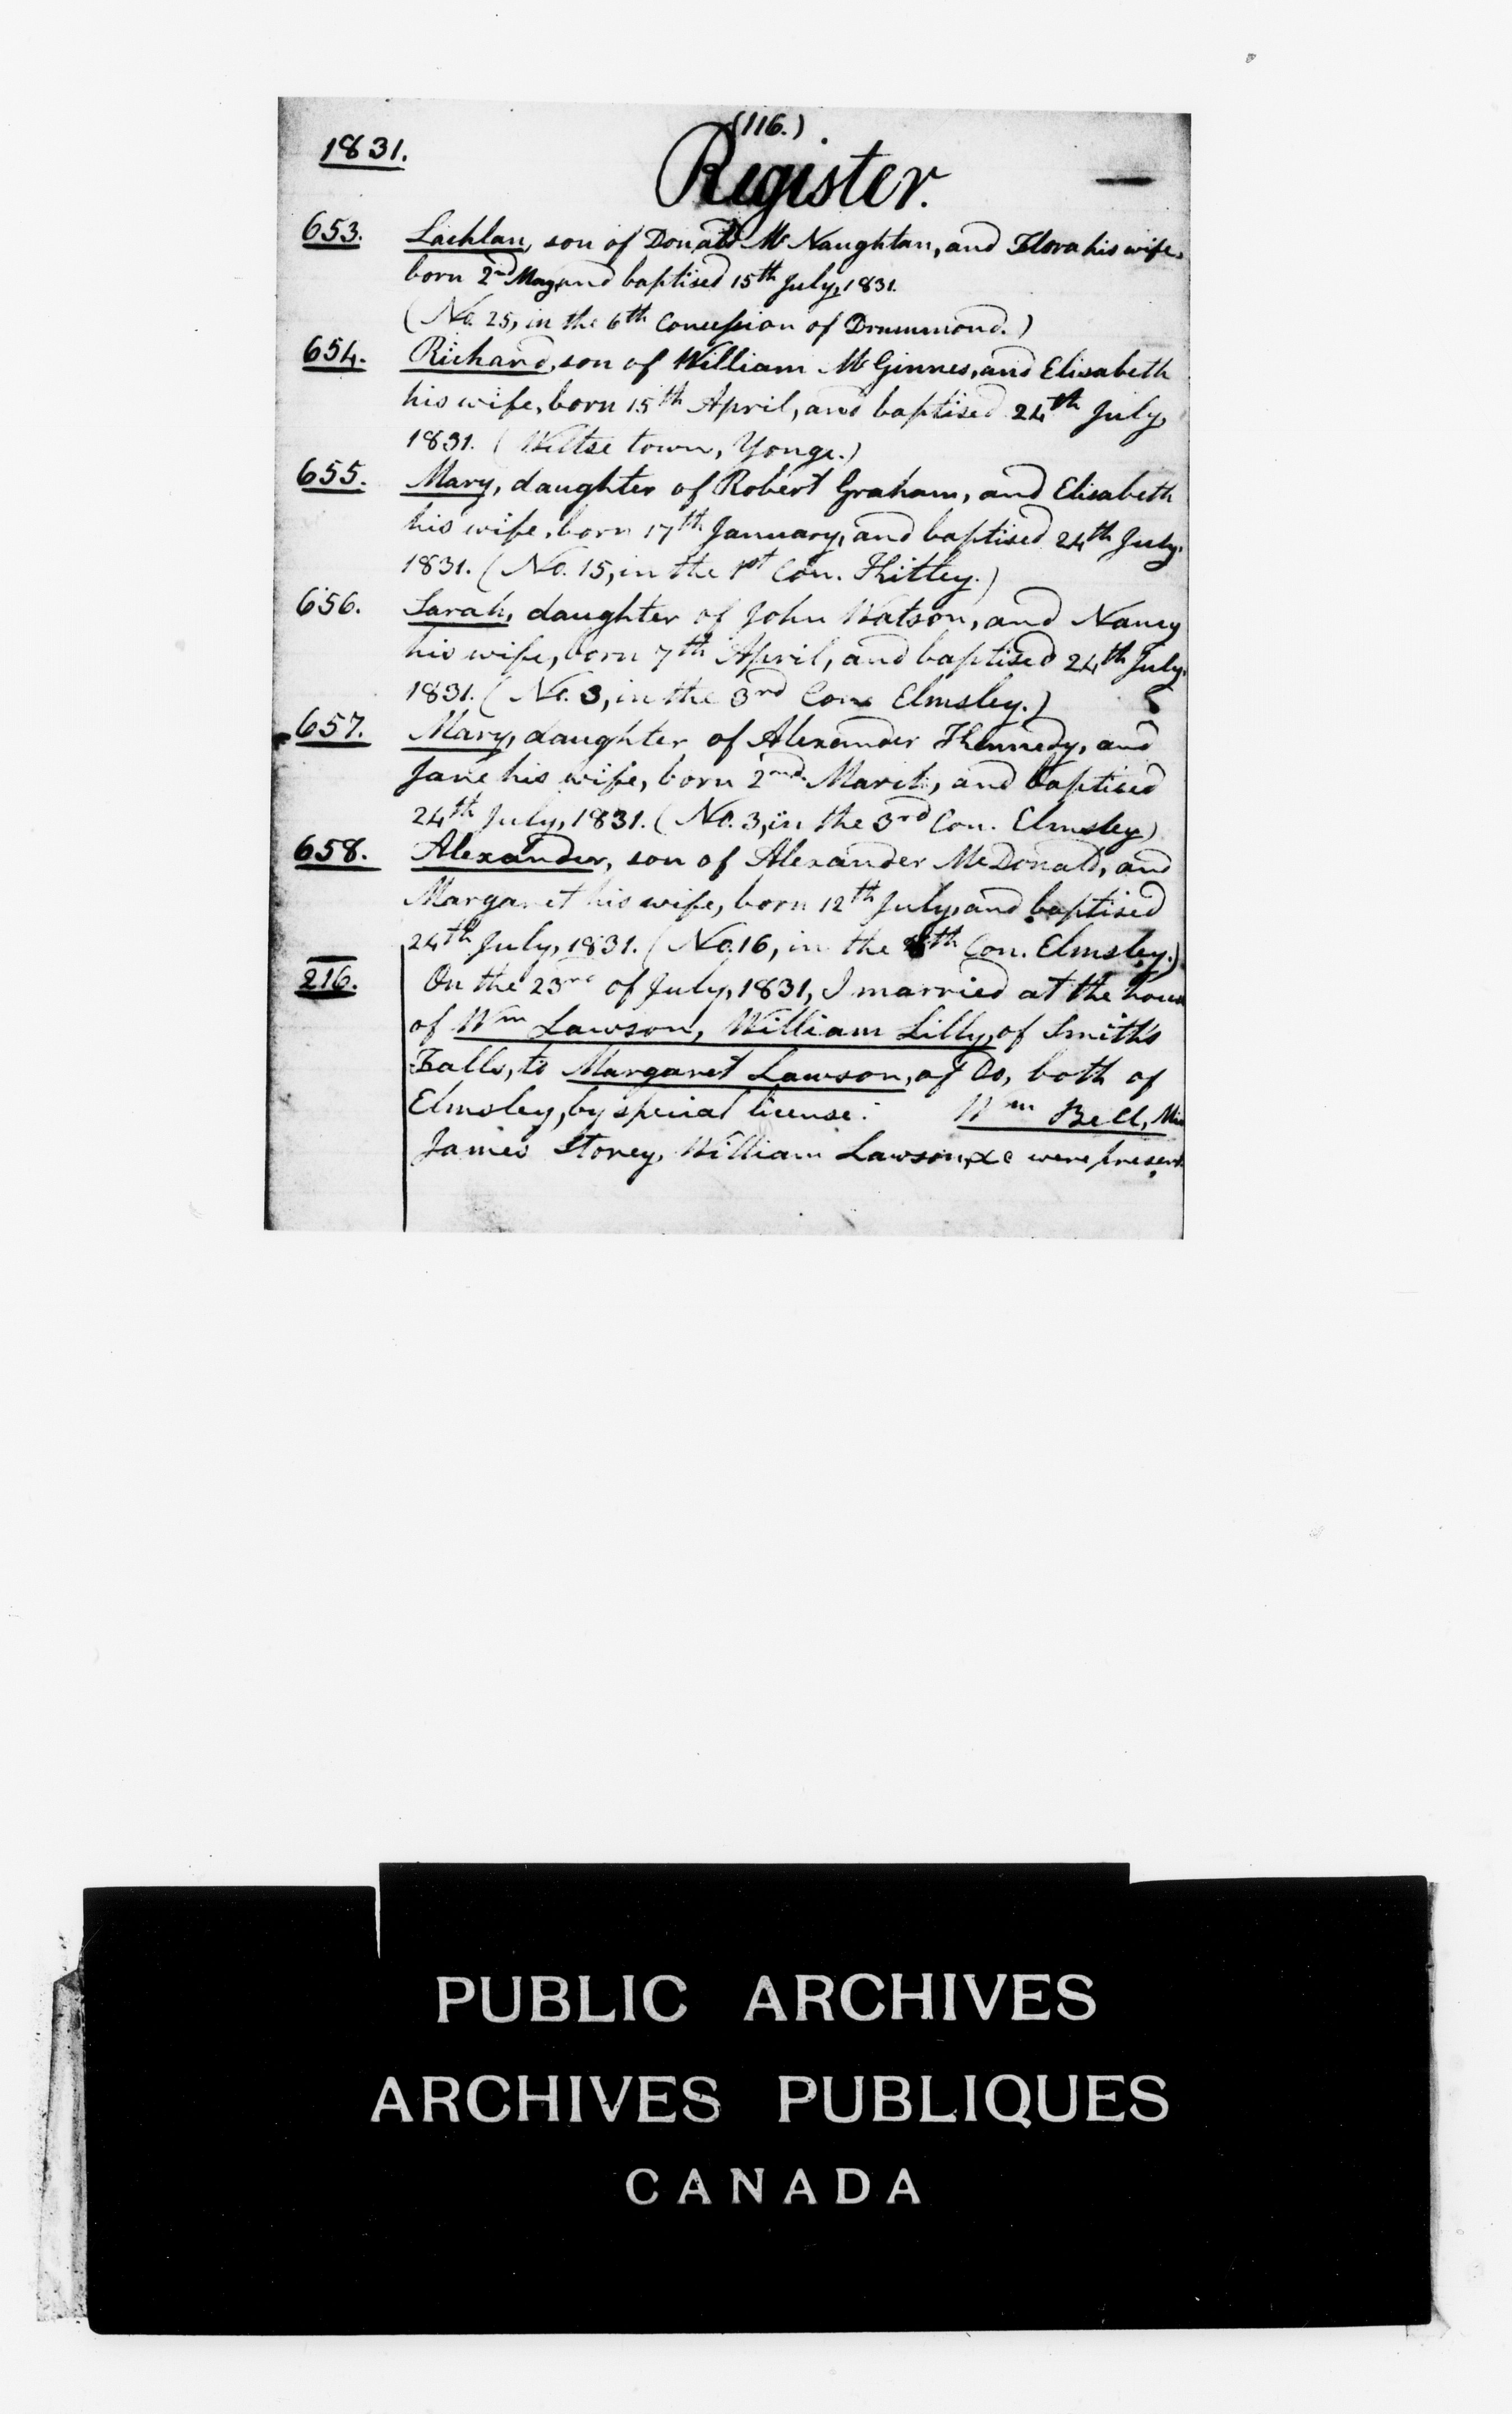 (116.)
1831.
Register.
653. Lachlan, son of Donald McNaughtan, and Flora his wife,
born 2nd May, and baptised 15th July, 1831.
(No. 25, in the 6th Concession of Drummond.)
654. Richard, son of William McGinnes, and Elisabeth
his wife, born 15th April, and baptised 24th July,
1831. (Wiltse town, Yonge.)
655. Mary, daughter of Robert Graham, and Elisabeth
his wife, born 17th January, and baptised 24th July.
1831. (No. 15, in the 1st Con. Kitley.)
656. Sarah, daughter of John Watson, and Nancy
his wife, born 7th April, and baptised 24th July.
1831. (No. 3, in the 3rd Con. Elmsley.)
657. Mary, daughter of Alexander Kennedy, and
Jane his wife, born 2nd March, and baptised
24th July, 1831. (No. 3, in the 3rd Con. Elmsley)
658. Alexander, son of Alexander McDonald, and
Margaret his wife, born 12th July, and baptised
24th July, 1831. (No. 16, in the th Con. Elmsley.)
216. On the 23rd of July, 1831, I married at the house
of Wm Lawson, William Lilly, of Smith's
Falls, to Margaret Lawson, of Do, both of
Elmsley, by special license. Wm Bell, Min
James Storey, William Lawson, &c were present.
PUBLIC ARCHIVES
ARCHIVES PUBLIQUES
CANADA